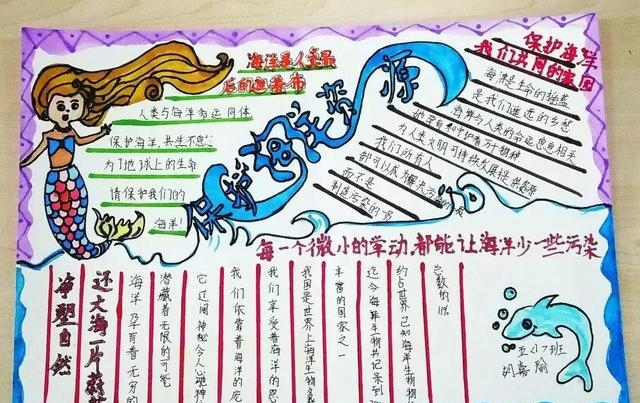 海洋是人类最
后的遮羞布
人类与海洋命运同体
保护海洋,共生不息!
为了地球上的生命
请保护我们的
海洋!
保护海洋资源
保护海洋
我们共同的家园
海洋是生命的摇篮
是我们遥远的乡愁
海洋与人类的命运息息相关
她孕育和守护着万千物种
为人类文明可持续发展提供
我们所有人
都可以成为解决污染的
而不是
制造污染的
每一个微小的举动,都能让海洋少一些污染
总数的11%
约占世界已知海洋生物
迄今海洋生物共记录到
丰富的国家之一
我国是世界上海洋生物
我们享受着海洋的恩
我们依靠着海洋的
它辽阔神秘令人心驰神
潜藏着无限的可能
海洋孕育着无穷的
还大海一片
净塑自然
五2班
胡嘉瑜